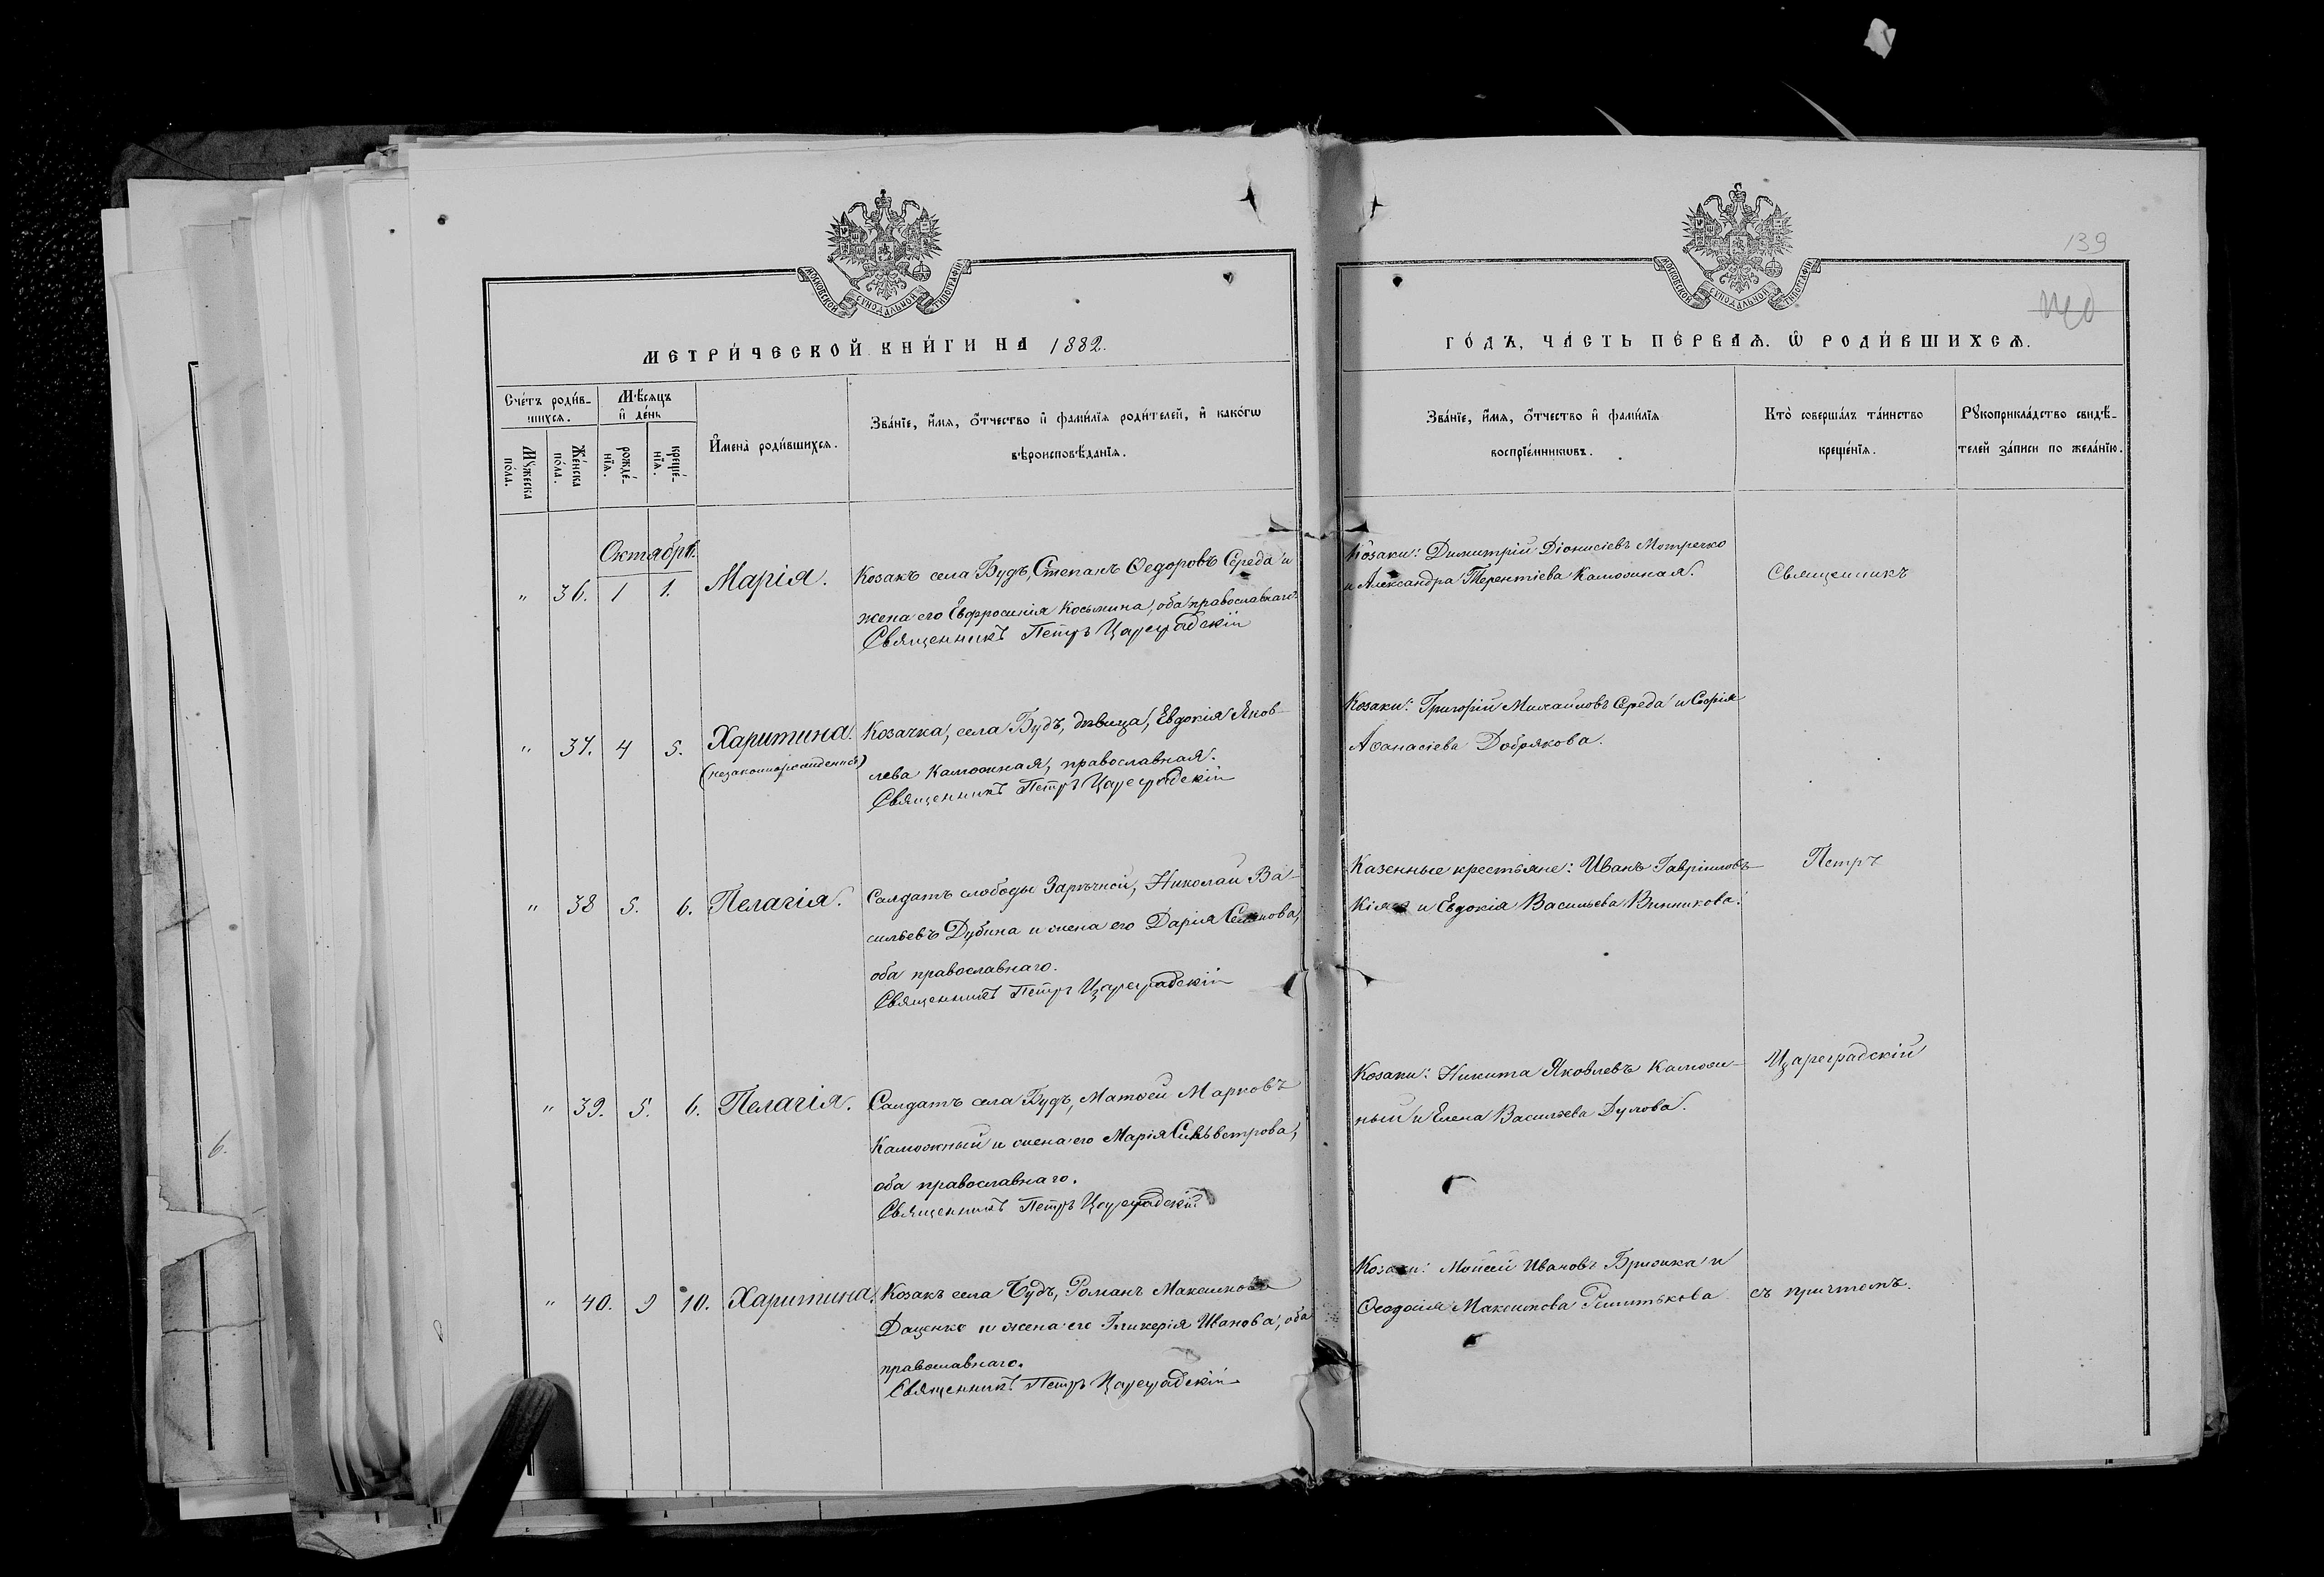 МОСКОВСКОЙ СѴНОДАЛЬНОЙ ТИПОГРАФІИ
МЕТРИ́ЧЕСКОЙ КНИ́ГИ НА 1882.
Сче́тъ роди́в-
шихся.
Мѣ́сяцъ
и҆ де́нь
Мꙋ́жеска
по́ла.
Же́нска
по́ла.
рожде́-
нїѧ.
креще́-
нїѧ.
И҆мена̀ роди́вшихся.
Зва́нїе, и҆́мѧ, ѻ҆́тчество и҆ фами́лїѧ роди́телей, и҆ како́гѡ
вѣроисповѣ́данїѧ.
Октябрь.
" 36. 1 1. Марія. Козакъ села Будъ, Степанъ Ѳедоровъ Середа и
жена его Евфросинія Косьмина, оба православнаго
Священникъ Петръ Цареградскій
" 37. 4 5. Харитина. Козачка, села Будъ, дѣвица, Евдокія Яков-
(незаконнорожденная) лева Калюжная, православная.
Священникъ Петръ Цареградскій
" 38 5. 6. Пелагія. Салдатъ слободы Зарѣчной, Николай Ва-
сильевъ Дубина и жена его Дарія
оба православнаго.
Священникъ Петръ Цареградскій
" 39. 5. 6. Пелагія. Салдатъ села Будъ, Матѳей Марковъ
Калюжный и жена его Марія Сильвестрова,
оба православнаго.
Священникъ Петръ Цареградскій
" 40. 9 10. Харитина. Козакъ села Будъ, Романъ Максимовъ
Даценко и жена его Гликерія Иванова, оба
православнаго.
Священникъ Петръ Цареградскій
6.
139
МОСКОВСКОЙ СѴНОДАЛЬНОЙ ТИПОГРАФІИ
ГО́ДЪ, ЧА́СТЬ ПЕ́РВАѦ. Ѡ҆ РОДИ́ВШИХСѦ.
Зва́нїе, и҆́мѧ, ѻ҆́тчество и҆ фами́лїѧ
воспрїе́мникѡвъ.
Кто̀ соверша́лъ та́инство
креще́нїѧ.
Рꙋкоприкла́дство свидѣ́-
телей за́писи по жела́нїю.
Козаки: Димитрій Діонисіевъ Мотречко
и Александра Терентіева Калюжная. Священникъ
Козаки: Григорій Михайловъ Середа и Софія
Аѳанасіева Добрякова.
Казенные крестьяне: Иванъ Гавріиловъ Петръ
и Евдокія Васильева Винникова.
Козаки: Никита Яковлевъ Калюж- Цареградскій
ный и Елена Васильева Дулова.
Козаки: Моисей Ивановъ Брюшка и
Ѳеодосія Максимова съ причтомъ.